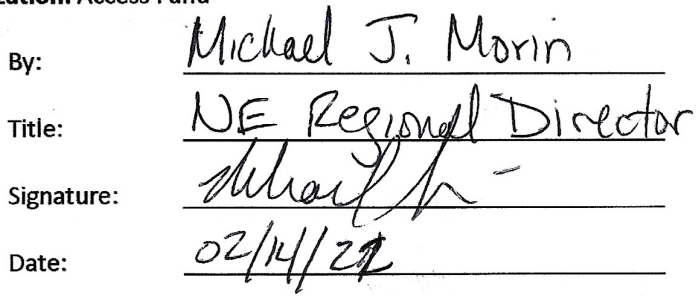 By: Michael J. Morin
Title: NE Regional Director
Signature:
Date: 02/14/22